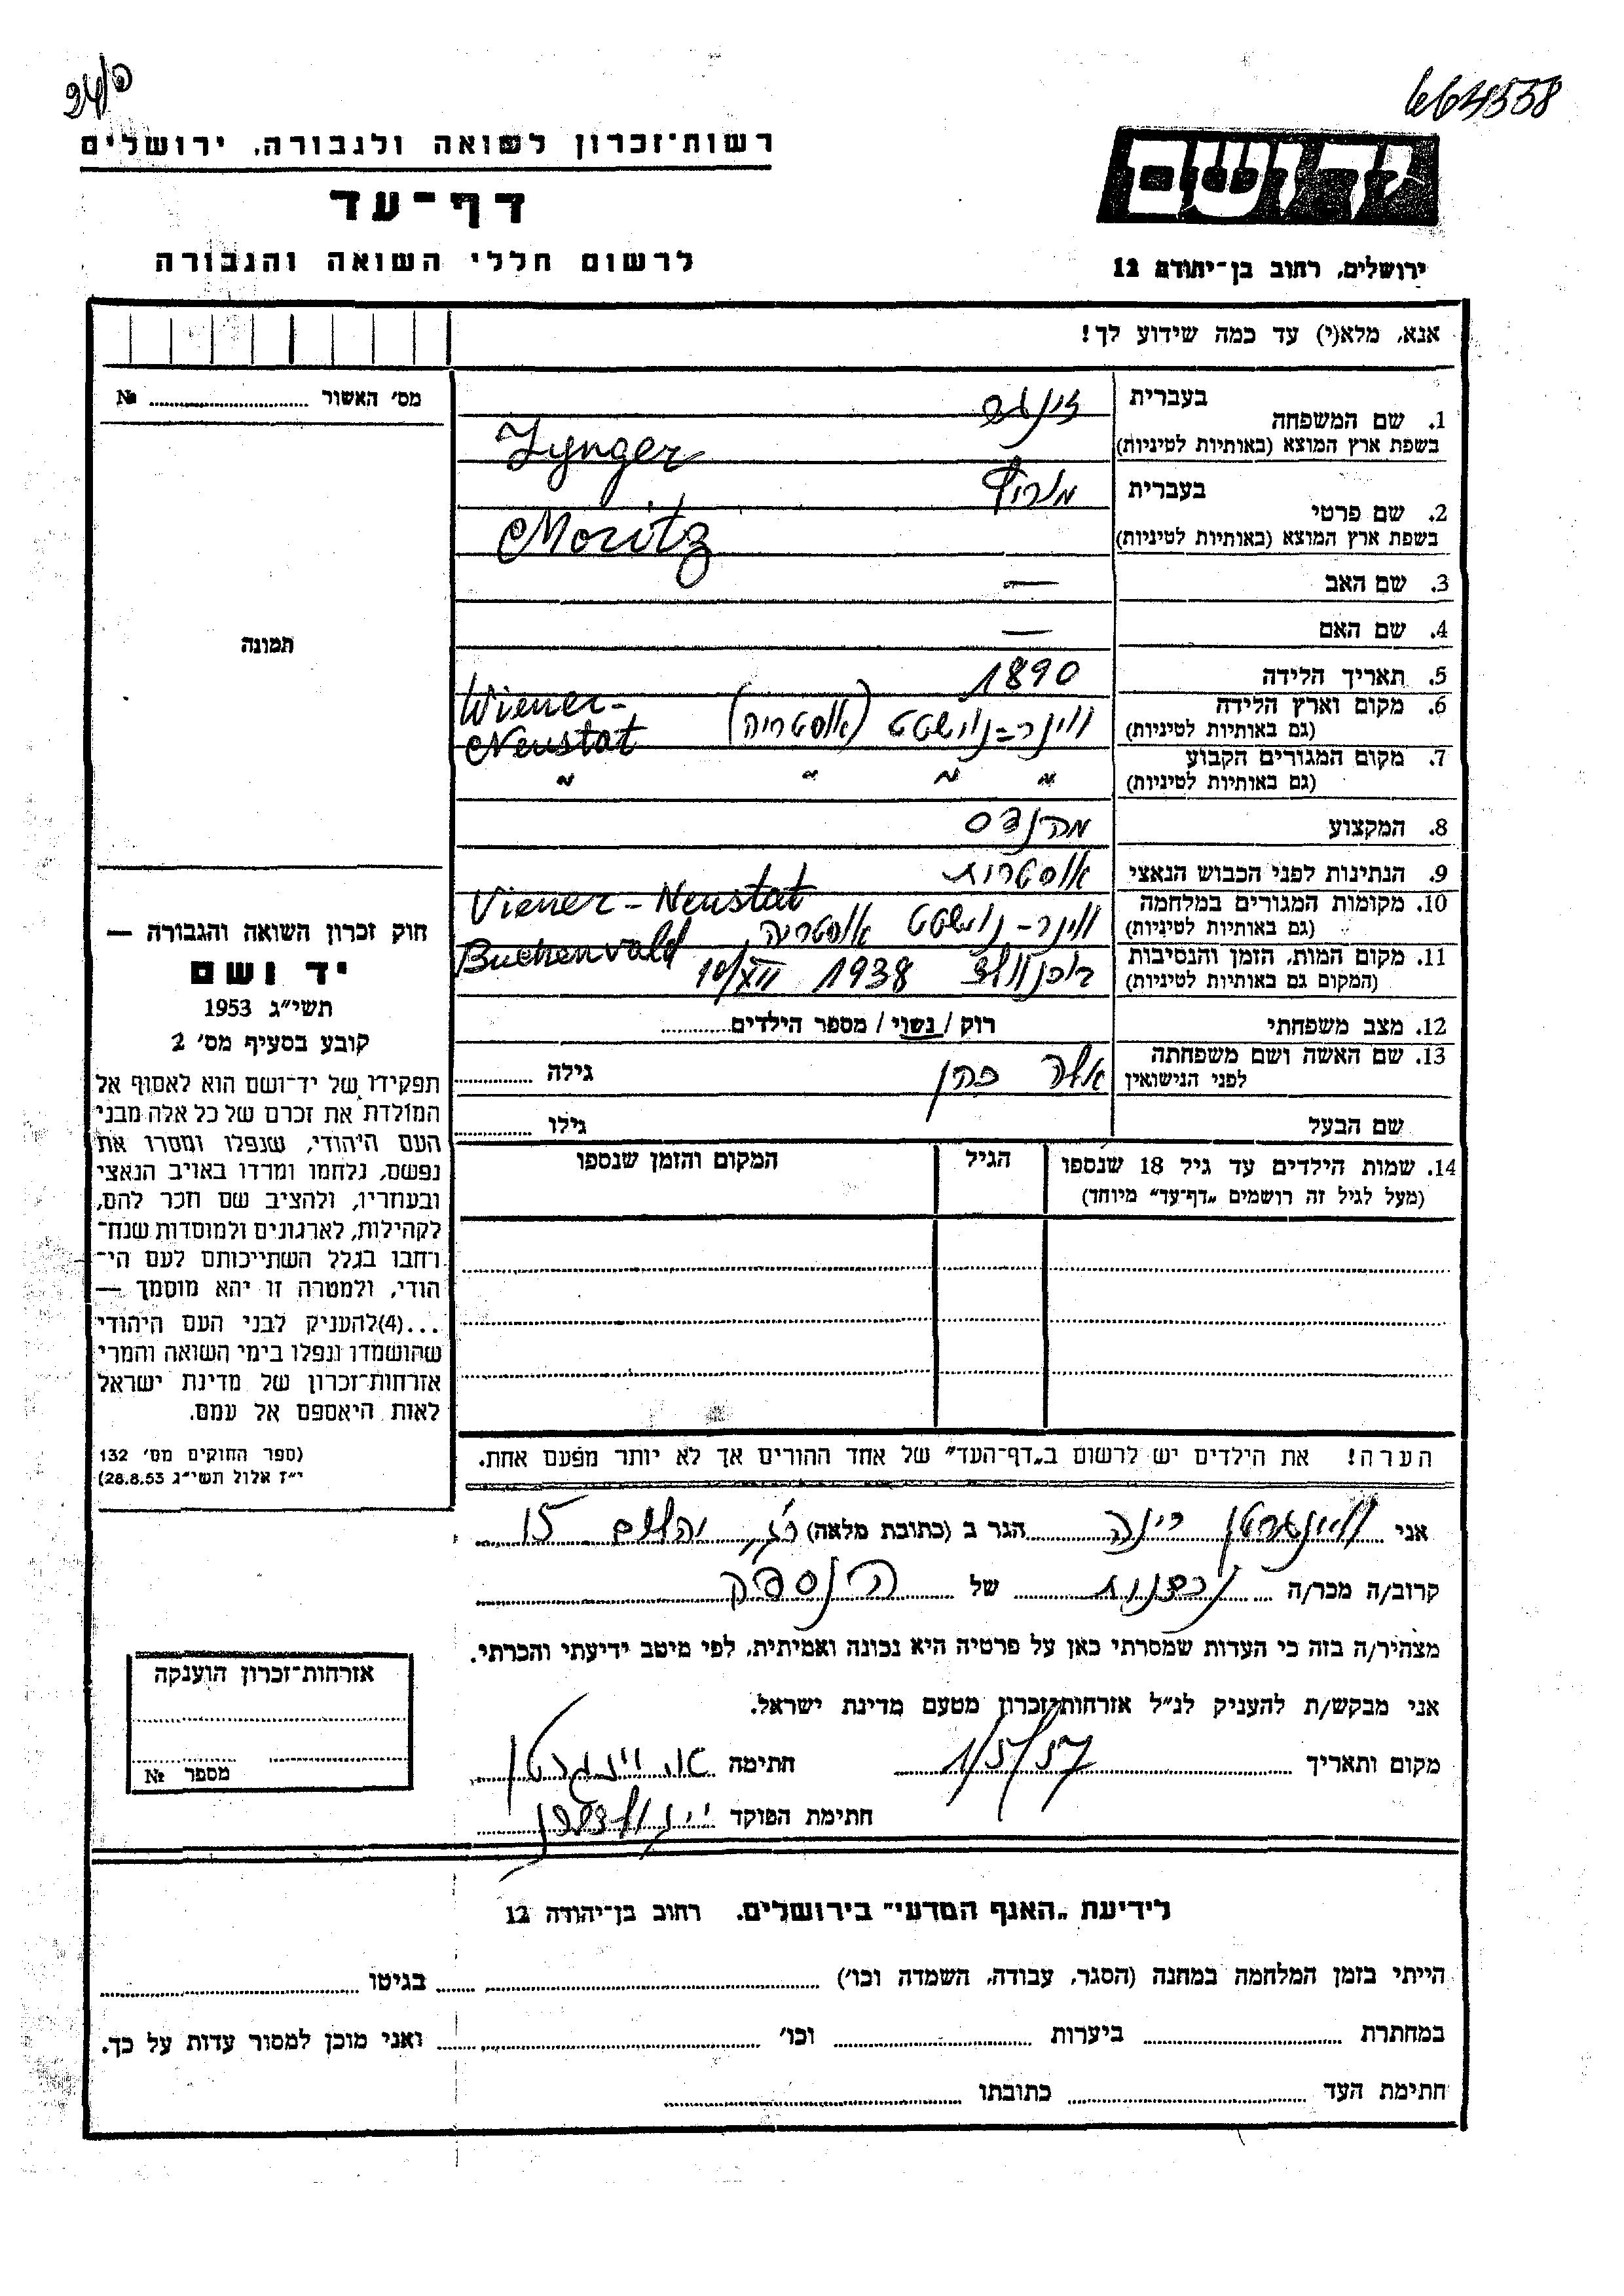 664558
רשות־זכרון לשואה ולגבורה, ירושלים
דף־עד
לרשום חללי השואה והגבורה
יד ושם
ירושלים, רחוב בן־יהודה 12
אנא, מלא(י) עד כמה שידוע לך!
מס' האשור № 
1. שם המשפחה בעברית זינגר
בשפת ארץ המוצא (באותיות לטיניות) Zynger
2. שם פרטי בעברית מוריץ
בשפת ארץ המוצא (באותיות לטיניות) Moritz
3. שם האב —
4. שם האם —
תמונה
5. תאריך הלידה 1890
6. מקום וארץ הלידה (גם באותיות לטיניות) ווינר=נוישטט (אוסטריה) Wiener-Neustat
7. מקום המגורים הקבוע (גם באותיות לטיניות) " " " "
8. המקצוע מהנדס
9. הנתינות לפני הכבוש הנאצי אוסטרית
10. מקומות המגורים במלחמה (גם באותיות לטיניות) ווינר-נוישטט אוסטריה Viener-Neustat
11. מקום המות, הזמן והנסיבות (המקום גם באותיות לטיניות) בוכנוולד 1938 10/XII Buchenvald
12. מצב משפחתי רוק / נשוי / מספר הילדים
13. שם האשה ושם משפחתה לפני הנישואין אלה כהן גילה
שם הבעל גילו
14. שמות הילדים עד גיל 18 שנספו
(מעל לגיל זה רושמים „דף־עד" מיוחד)
הגיל
המקום והזמן שנספו
חוק זכרון השואה והגבורה —
יד ושם
תשי"ג 1953
קובע בסעיף מס' 2
תפקידו של יד־ושם הוא לאסוף אל
המולדת את זכרם של כל אלה מבני
העם היהודי, שנפלו ומסרו את
נפשם, נלחמו ומרדו באויב הנאצי
ובעוזריו, ולהציב שם וזכר להם,
לקהילות, לארגונים ולמוסדות שנח־
רבו בגלל השתייכותם לעם הי־
הודי, ולמטרה זו יהא מוסמך —
...(4)להעניק לבני העם היהודי
שהושמדו ונפלו בימי השואה והמרי
אזרחות־זכרון של מדינת ישראל
לאות היאספם אל עמם.
(ספר החוקים מס' 132
י"ז אלול תשי"ג 28.8.53)
הערה! את הילדים יש לרשום ב„דף־העד" של אחד ההורים אך לא יותר מפעם אחת.
אני ויינגרטן דינה הגר ב (כתובת מלאה) ר"ג, יהלום 15
קרוב/ה מכר/ה של
מצהיר/ה בזה כי העדות שמסרתי כאן על פרטיה היא נכונה ואמיתית, לפי מיטב ידיעתי והכרתי.
אני מבקש/ת להעניק לנ"ל אזרחות־זכרון מטעם מדינת ישראל.
מקום ותאריך 1/5/57 חתימה ויינגרטן
חתימת הפוקד
אזרחות־זכרון הוענקה
מספר №
לידיעת „האגף המדעי" בירושלים, רחוב בן־יהודה 12
הייתי בזמן המלחמה במחנה (הסגר, עבודה, השמדה וכו') בגיטו
במחתרת ביערות וכו' ואני מוכן למסור עדות על כך.
חתימת העד כתובתו